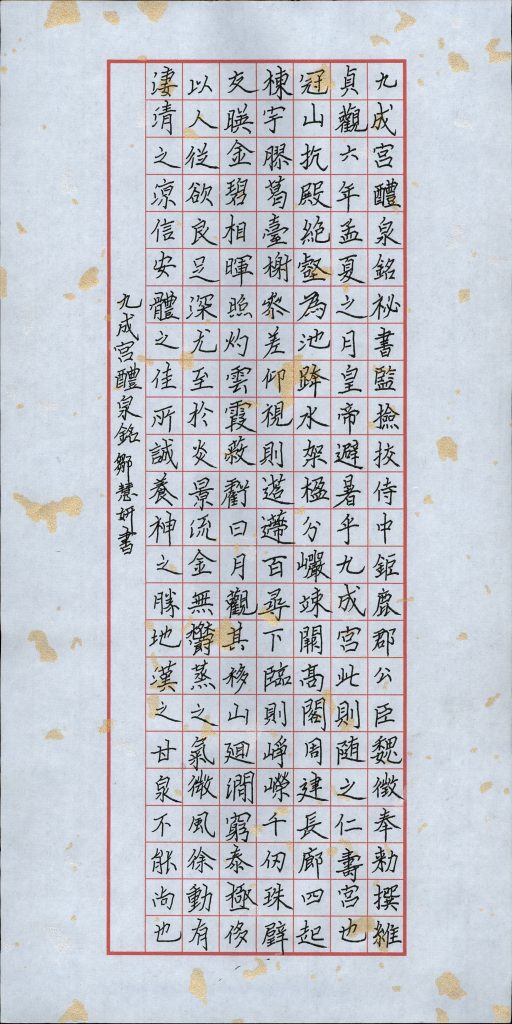 九成宮醴泉銘祕書監撿挍侍中鉅鹿郡公臣魏徵奉勑撰維
貞觀六年孟夏之月皇帝避暑乎九成宮此則随之仁壽宮也
冠山抗殿絶壑為池跨水架楹分巖竦闕高閣周建長廊四起
棟宇膠葛臺榭參差仰視則迢遰百尋下臨則崢嶸千仞珠璧
交暎金碧相暉照灼雲霞蔽虧日月觀其移山廻澗窮泰極侈
以人從欲良足深尤至於炎景流金無鬱蒸之氣微風徐動有
淒清之涼信安體之佳所誠養神之勝地漢之甘泉不能尚也
九成宮醴泉銘 鄒慧妍書